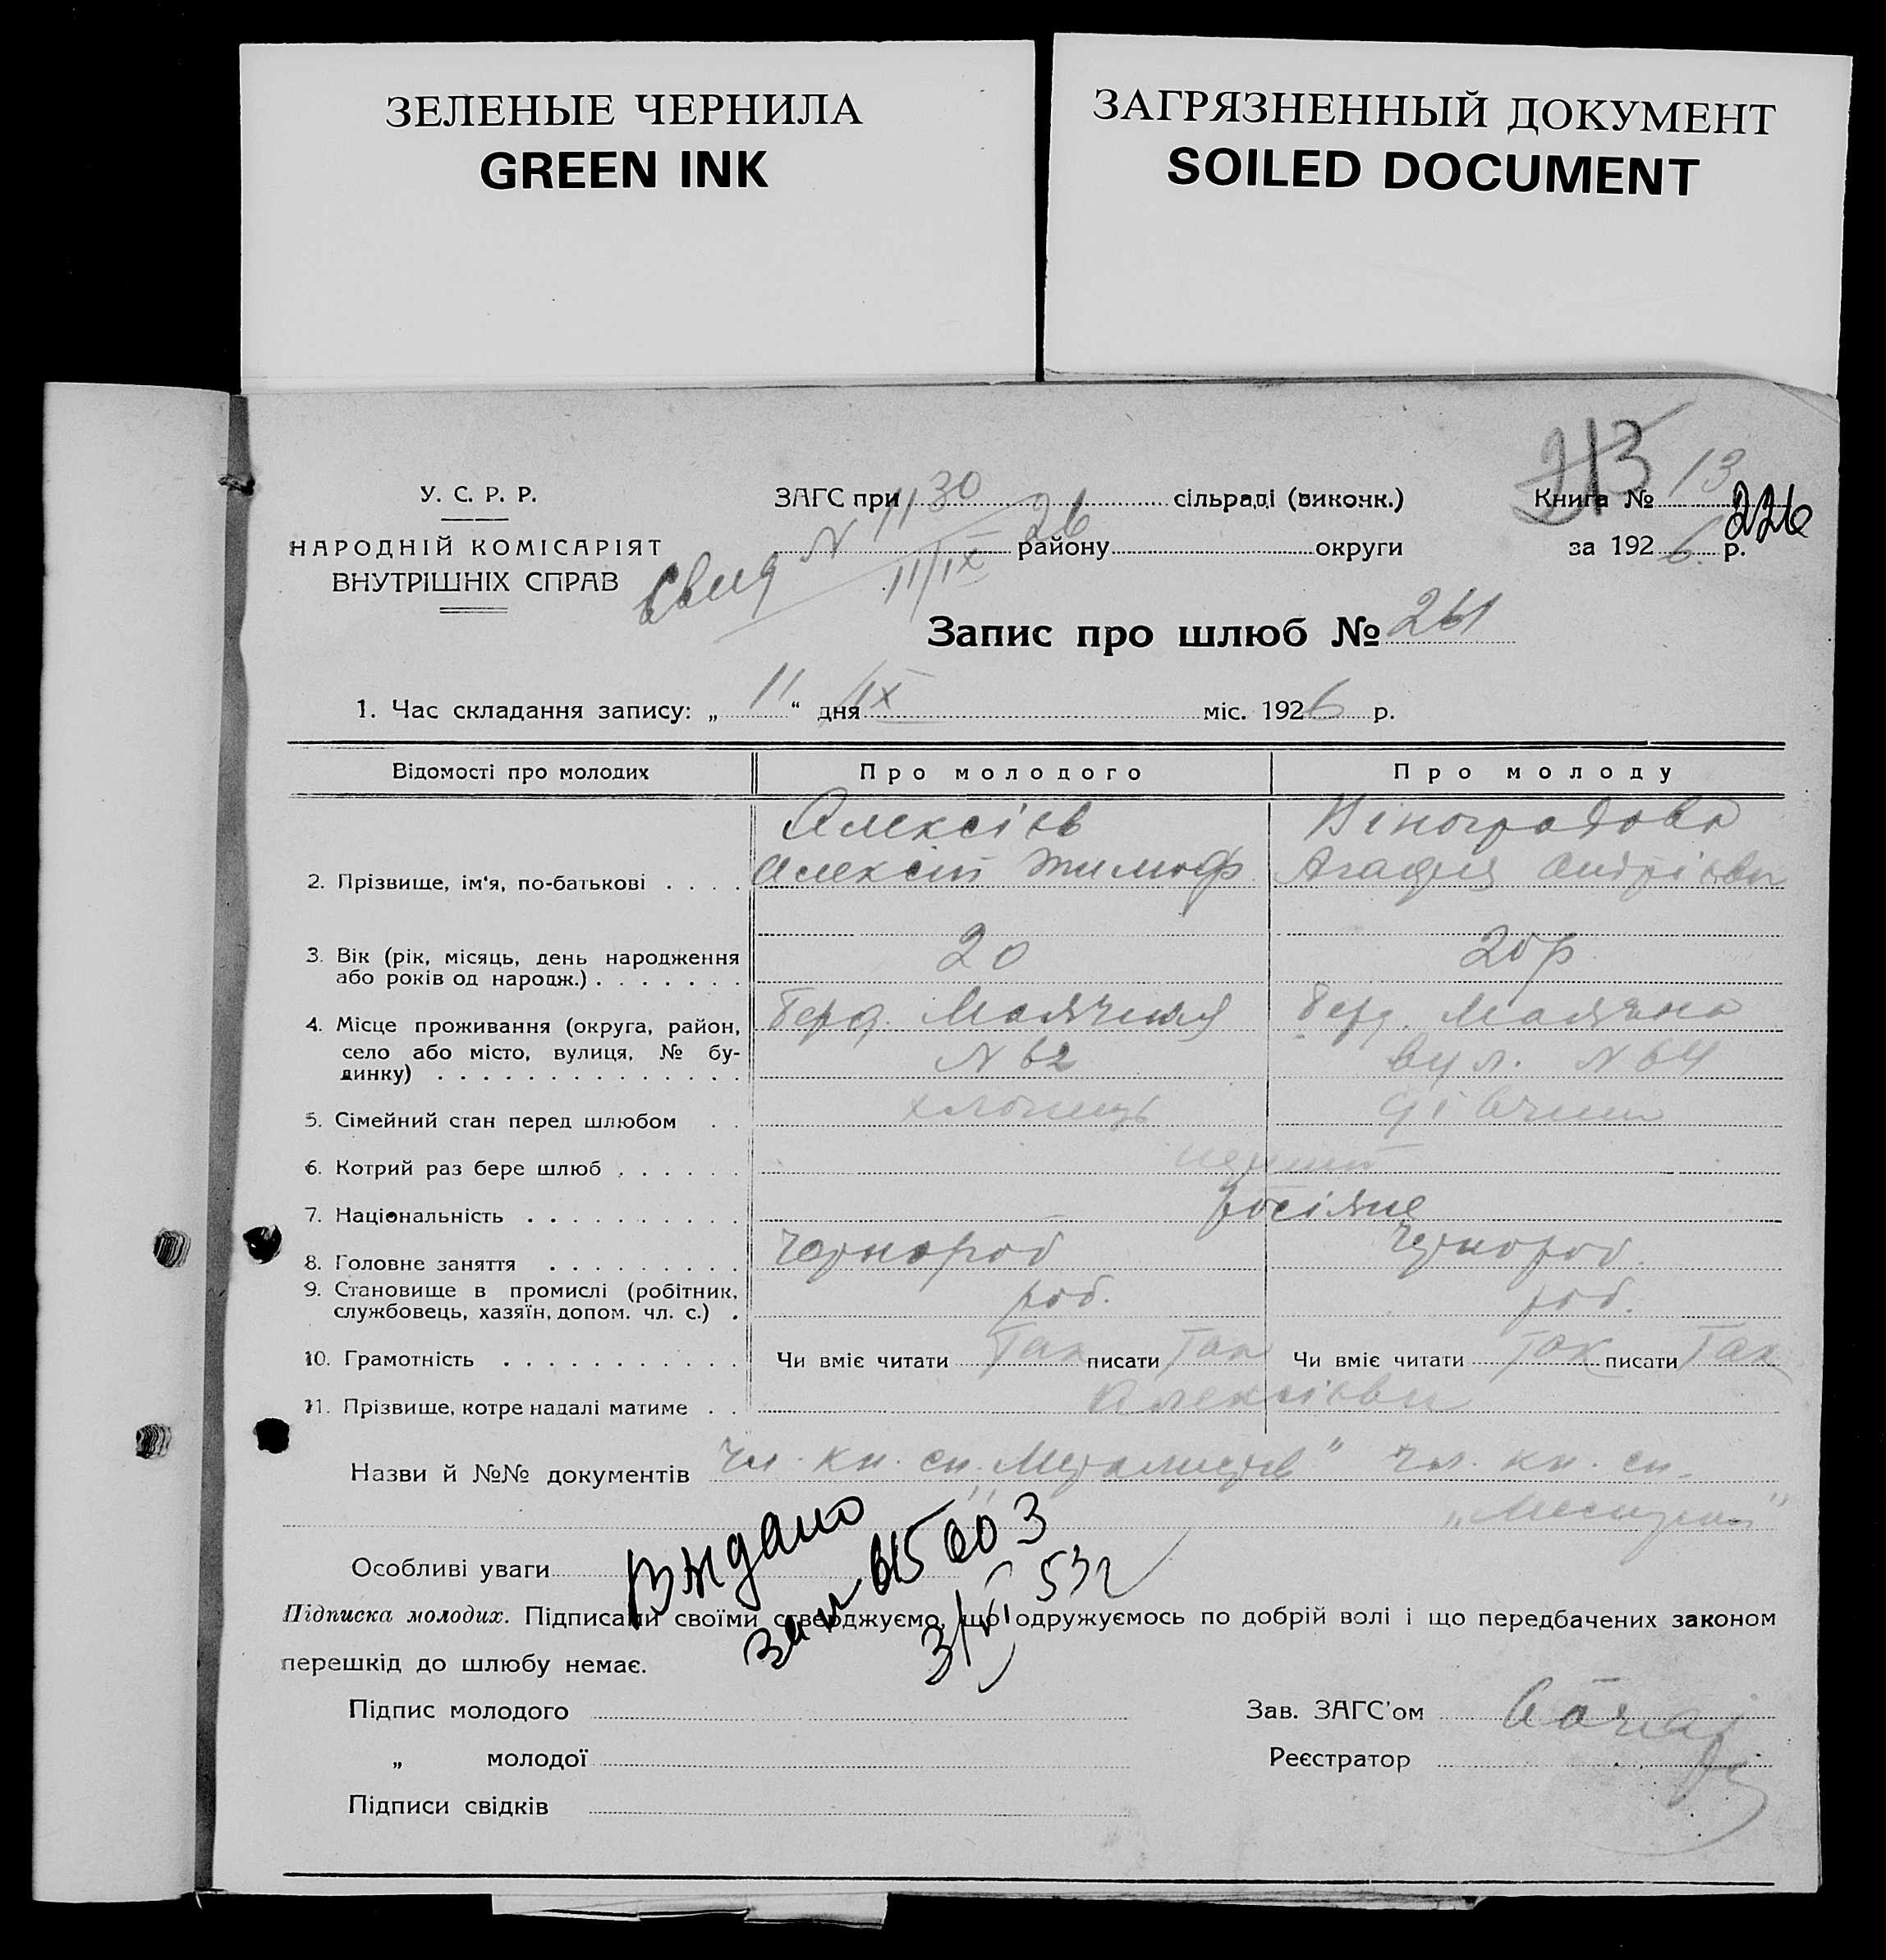 ЗЕЛЕНЫЕ ЧЕРНИЛА
GREEN INK
ЗАГРЯЗНЕННЫЙ ДОКУМЕНТ
SOILED DOCUMENT
У. С. Р. Р.
НАРОДНІЙ КОМІСАРІЯТ
ВНУТРІШНІХ СПРАВ
ЗАГС при сільраді (виконк.)
району округи
Свид N 1130
11/IX 26
213
Книга № 13
226
за 1926 р.
Запис про шлюб № 261
1. Час складання запису: „11“ дня IX міс. 1926 р.
Відомості про молодих Про молодого Про молоду
Алексієв Віноградова
2. Прізвище, ім'я, по-батькові . . . . Алексій Тимоф Агафія Андрієвн
3. Вік (рік, місяць, день народження 20 20 р
або років од народж.) . . . . . . .
4. Місце проживання (округа, район, Берд. Берд.
село або місто, вулиця, № бу- N 62 вул. N 64
динку) . . . . . . . . . . . . . .
5. Сімейний стан перед шлюбом . . хлопець дівчина
6. Котрий раз бере шлюб . . . . . . перший
7. Національність . . . . . . . . . . росіяне
8. Головне заняття . . . . . . . . . Чорнороб Чорнороб.
9. Становище в промислі (робітник, роб. роб.
службовець, хазяїн, допом. чл. с.) .
10. Грамотність . . . . . . . . . . . Чи вміє читати Так писати Так Чи вміє читати Так писати Так
11. Прізвище, котре надалі матиме . . Алексієви
Назви й №№ документів Чл. кн. сп. „Металістів" Чл. кн. сп.
Особливі уваги
Видано
3/VI 53г
Підписка молодих. Підписами своїми стверджуємо, що одружуємось по добрій волі і що передбачених законом
перешкід до шлюбу немає.
Підпис молодого Зав. ЗАГС'ом
„ молодої Реєстратор
Підписи свідків